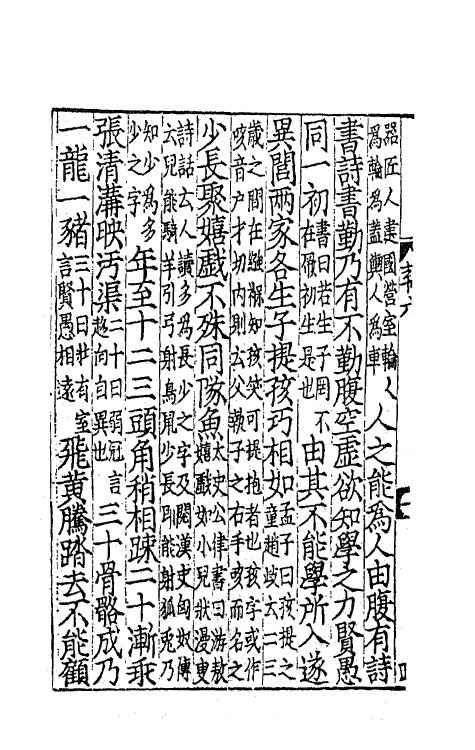 器匠人建國營宮室輪
為輪為蓋輿人為車
人之能為人由腹有詩
書詩書勤乃有不勤腹空虛欲知學之力賢愚
同一初
書曰若生子罔不
在厥初生是也
由其不能學所入遂
異閭兩家各生子提孩巧相如
孟子曰孩提之
童趙岐云二三
歲之間在襁褓知孩笑可提抱者也孩字或作
咳音户才切内則云父執子之右手咳而名之
少長聚嬉戲不殊同隊魚
太史公律書曰游敖
嬉戲如小兒狀漫叟
詩話云人讀多為長少之字及閱漢史匈奴傳
云兒能騎羊引弓射鳥鼠少長則能射狐兔乃
知少為多
少之字
年至十二三頭角稍相踈二十漸乖
張清溝映汚渠
二十曰弱冠言
趍向自異也
三十骨骼成乃
一龍一豬
三十曰壯有室
言賢愚相遠
飛黃騰踏去不能顧